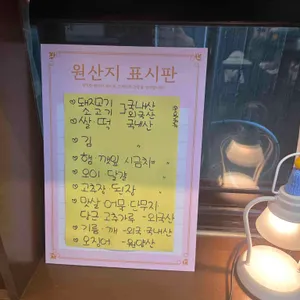 원산지 표시판
돼지고기 국내산
소고기 외국산
쌀 떡 국내산
김 〃
햄 깨잎 시금치 〃
오이 달걀
고추장 된장 〃
맛살 어묵 단무지
당근 고추가루 - 외국산
기름 깨 - 외국 국내산
오징어 - 원양산